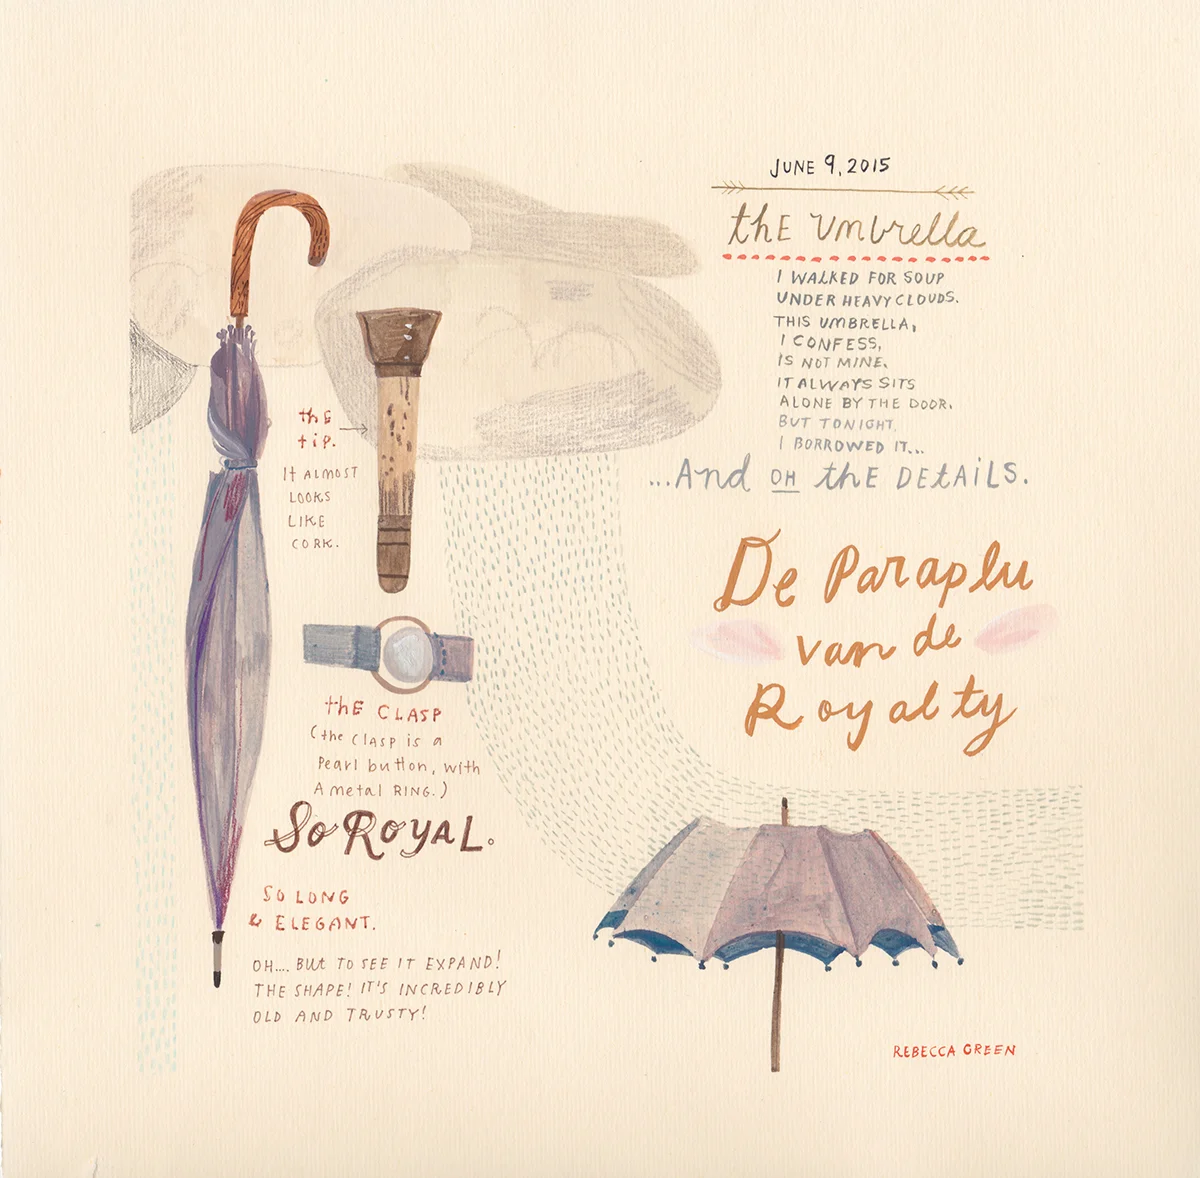 JUNE 9, 2015
the Umbrella
I WALKED FOR SOUP
UNDER HEAVY CLOUDS.
THIS UMBRELLA,
I CONFESS,
IS NOT MINE.
IT ALWAYS SITS
ALONE BY THE DOOR.
BUT TONIGHT
I BORROWED IT...
...And OH thE DETAILS.
De Paraplu
van de
Royalty
thE
tip.
It ALMOST
LOOKS
LIKE
CORK.
thE CLASP
(the clasp is a
Pearl button, with
A metal RING.)
SO ROYAL.
SO LONG
& ELEGANT.
OH.... BUT TO SEE IT EXPAND!
THE SHAPE! IT'S INCREDIBLY
OLD AND TRUSTY!
REBECCA GREEN